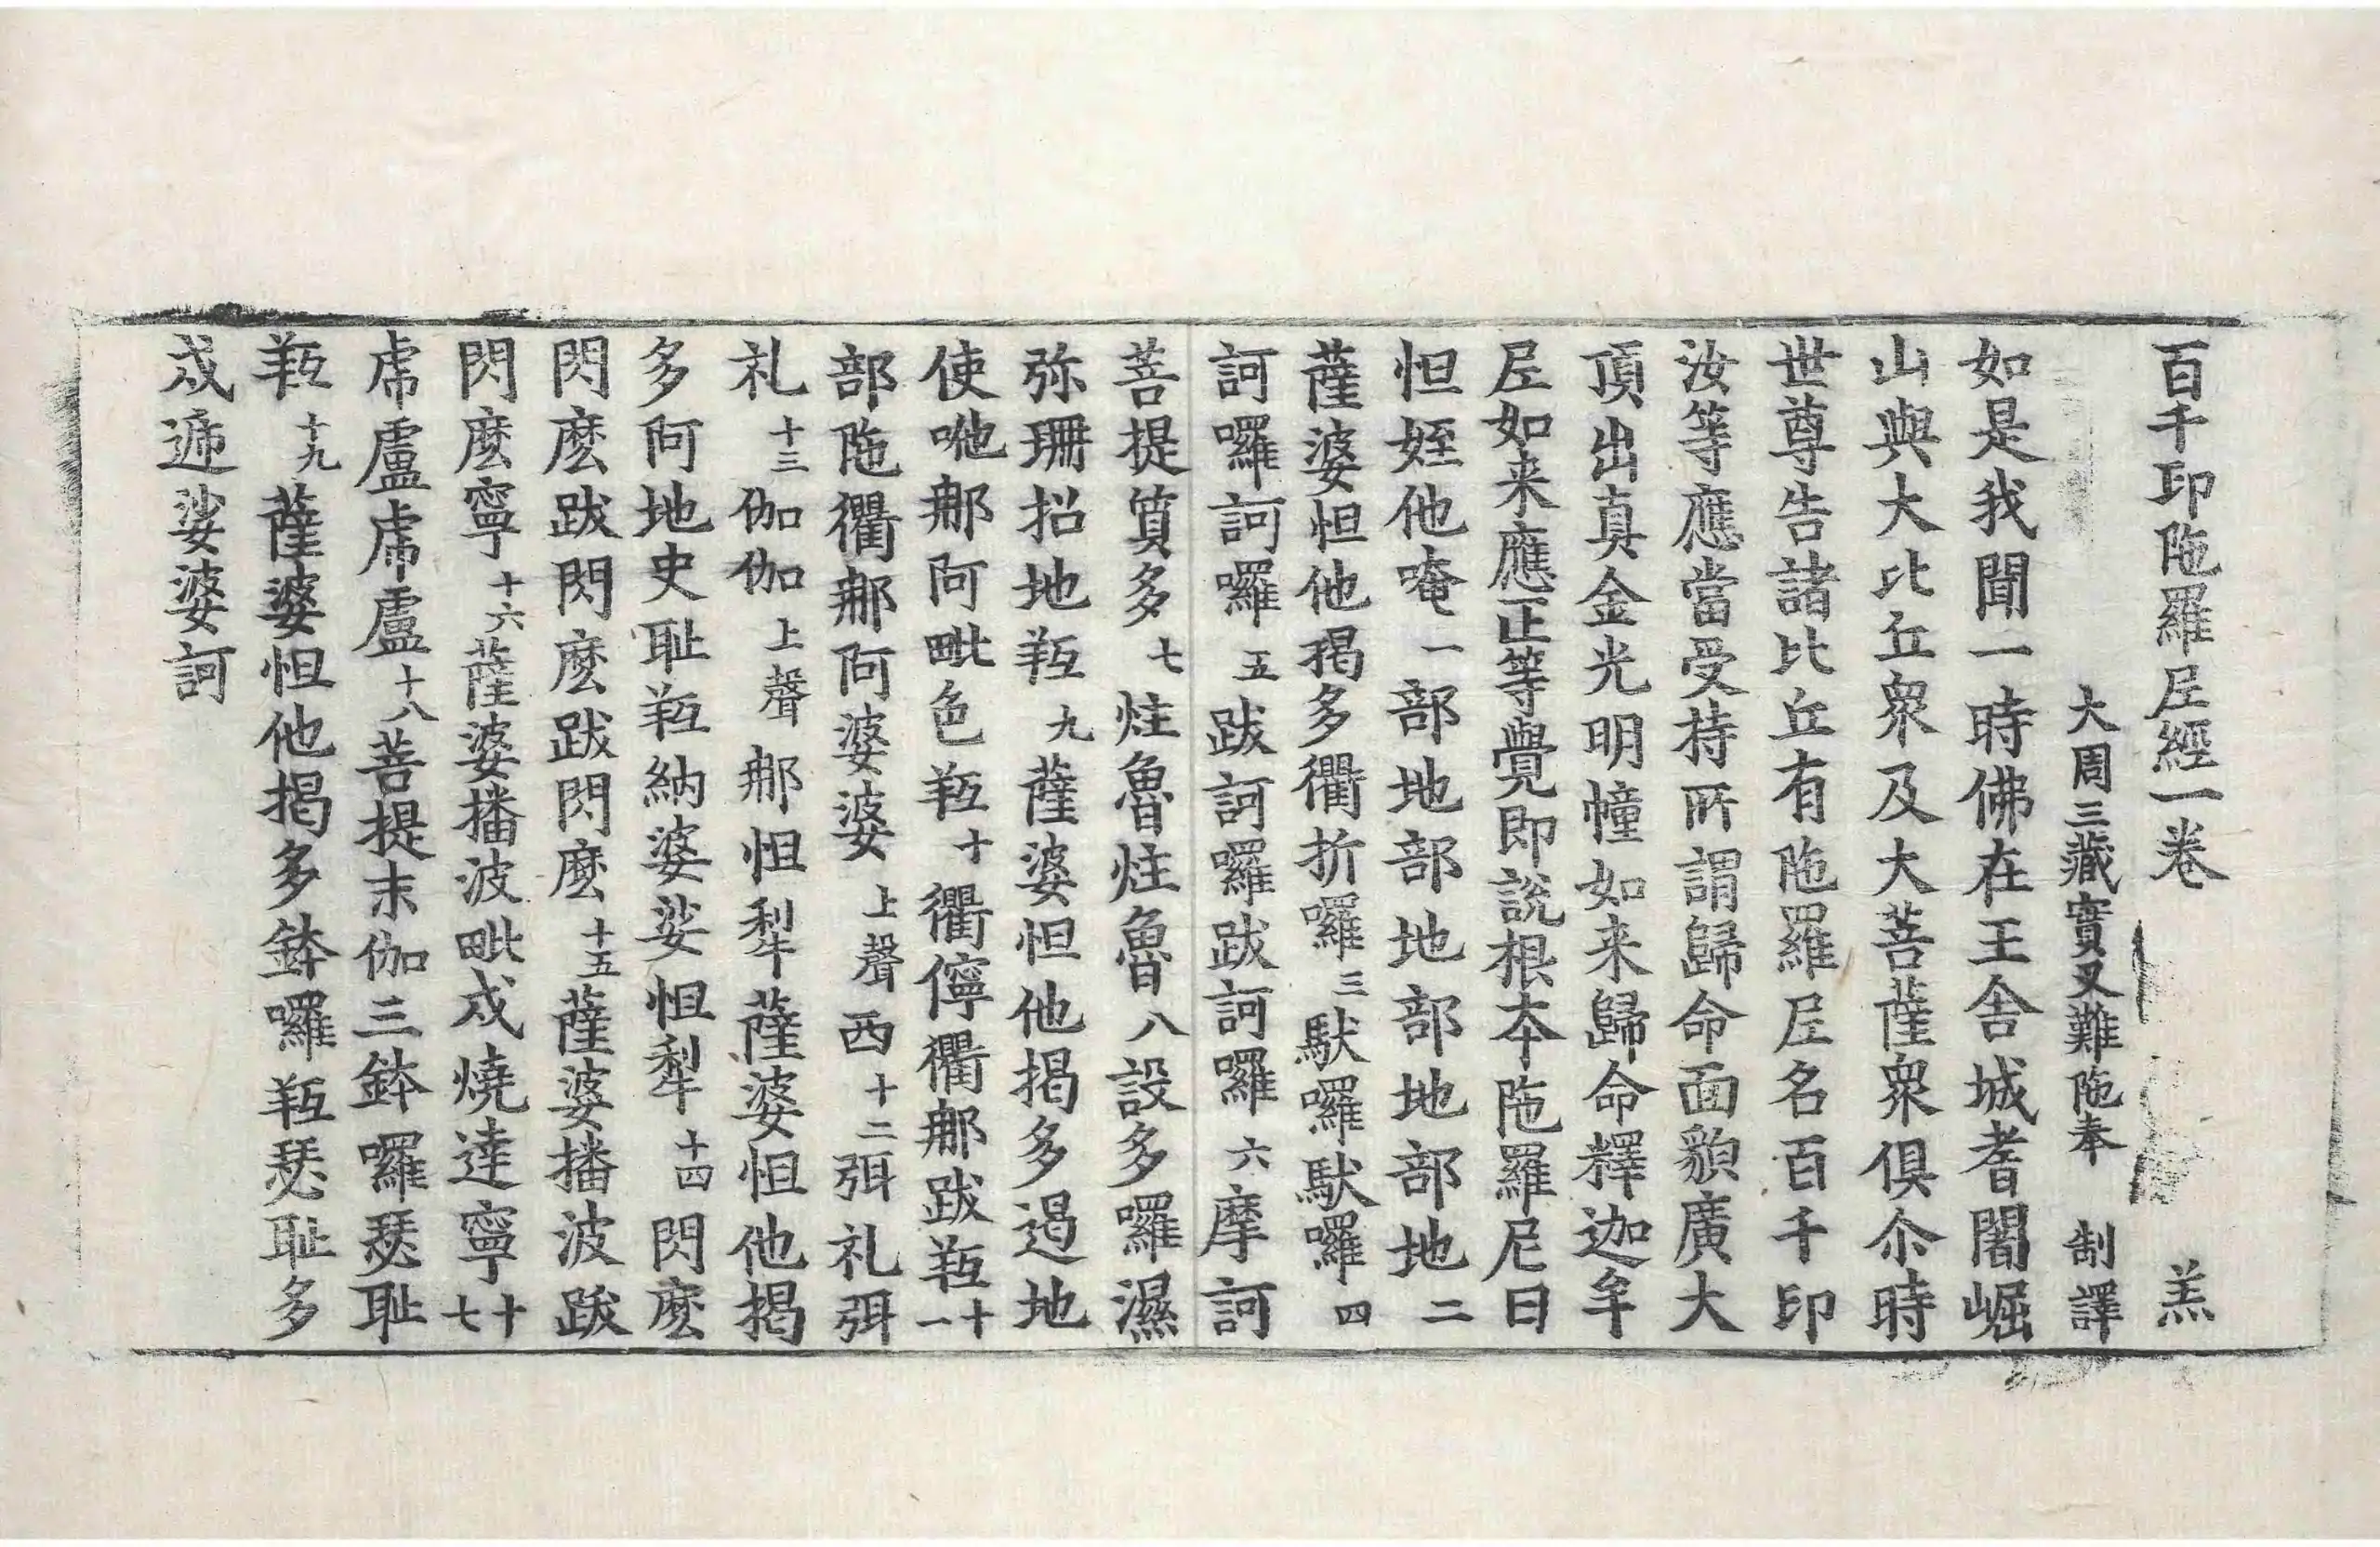 百千印陁羅𡰱經一卷 羔
大周三藏實叉難陁奉 制譯
如是我聞一時佛在王舍城耆闍崛
山與大比丘衆及大菩薩衆俱尒時
世尊告諸比丘有陁羅𡰱名百千印
汝等應當受持所謂歸命面貌廣大
頂出真金光明幢如来歸命釋迦牟
𡰱如来應正等覺即說根本陁羅尼曰
怛姪他唵一部地部地部地部地二
薩婆怛他揭多衢折囉三馱囉馱囉四
訶囉訶囉五跋訶囉跋訶囉六摩訶
菩提質多七炷魯炷魯八設多囉濕
弥珊招地羟九薩婆怛他揭多遏地
使嚫那阿毗色羟十衢儜衢那跋羟十一
部陁衢那阿婆婆上聲西十二弭礼弭
礼十三伽伽上聲那怛犁薩婆怛他揭
多阿地史耻羟納婆娑怛犁十四閃麽
閃麽跋閃麽跋閃麽十五薩婆播波跋
閃麽寧十六薩婆播波毗戍燒達寧十七
虎盧虎盧十八菩提末伽三鉢囉瑟耻
羟十九薩婆怛他揭多鉢囉羟瑟耻多
戍遞娑婆訶